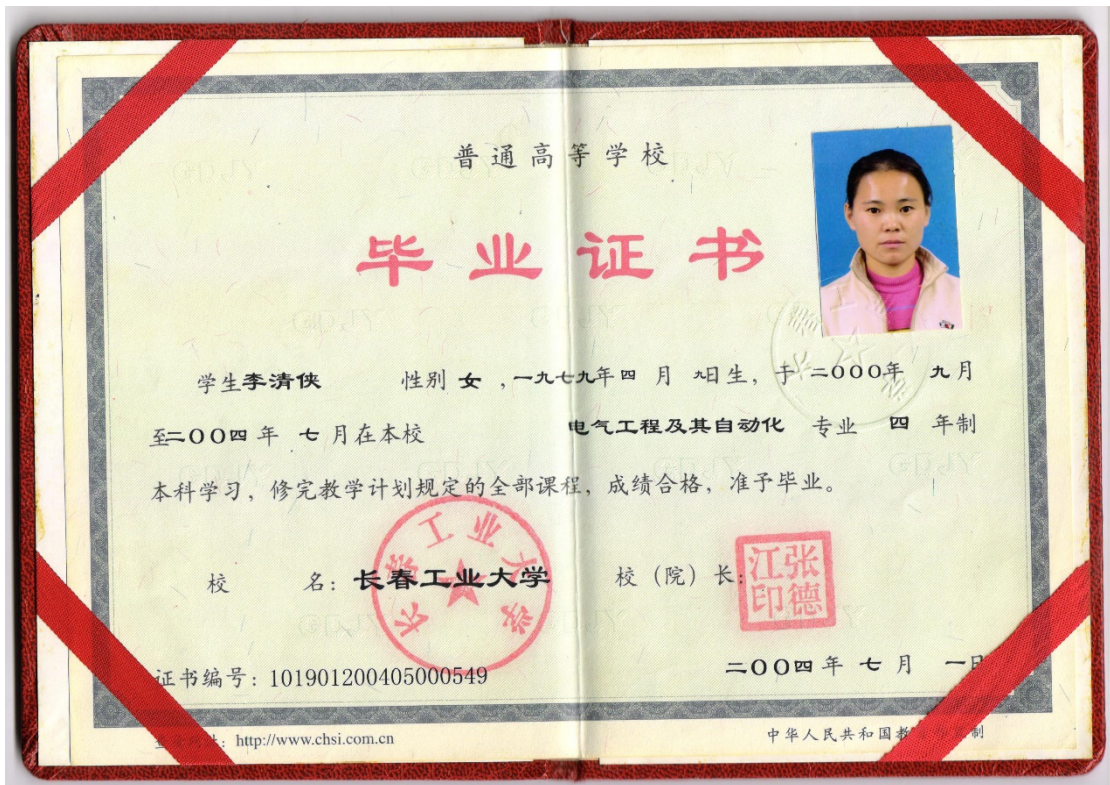 普通高等学校
毕业证书
学生李清侠 性别 女 ，一九七九年四 月 九日生，于 二000年 九月
至二00四 年 七 月在本校 电气工程及其自动化 专业 四 年制
本科学习，修完教学计划规定的全部课程，成绩合格，准予毕业。
校 名：长春工业大学 校（院）长：
长春工业大学
张德江印
二00四 年 七 月 一日
证书编号：101901200405000549
http://www.chsi.com.cn
中华人民共和国教
制